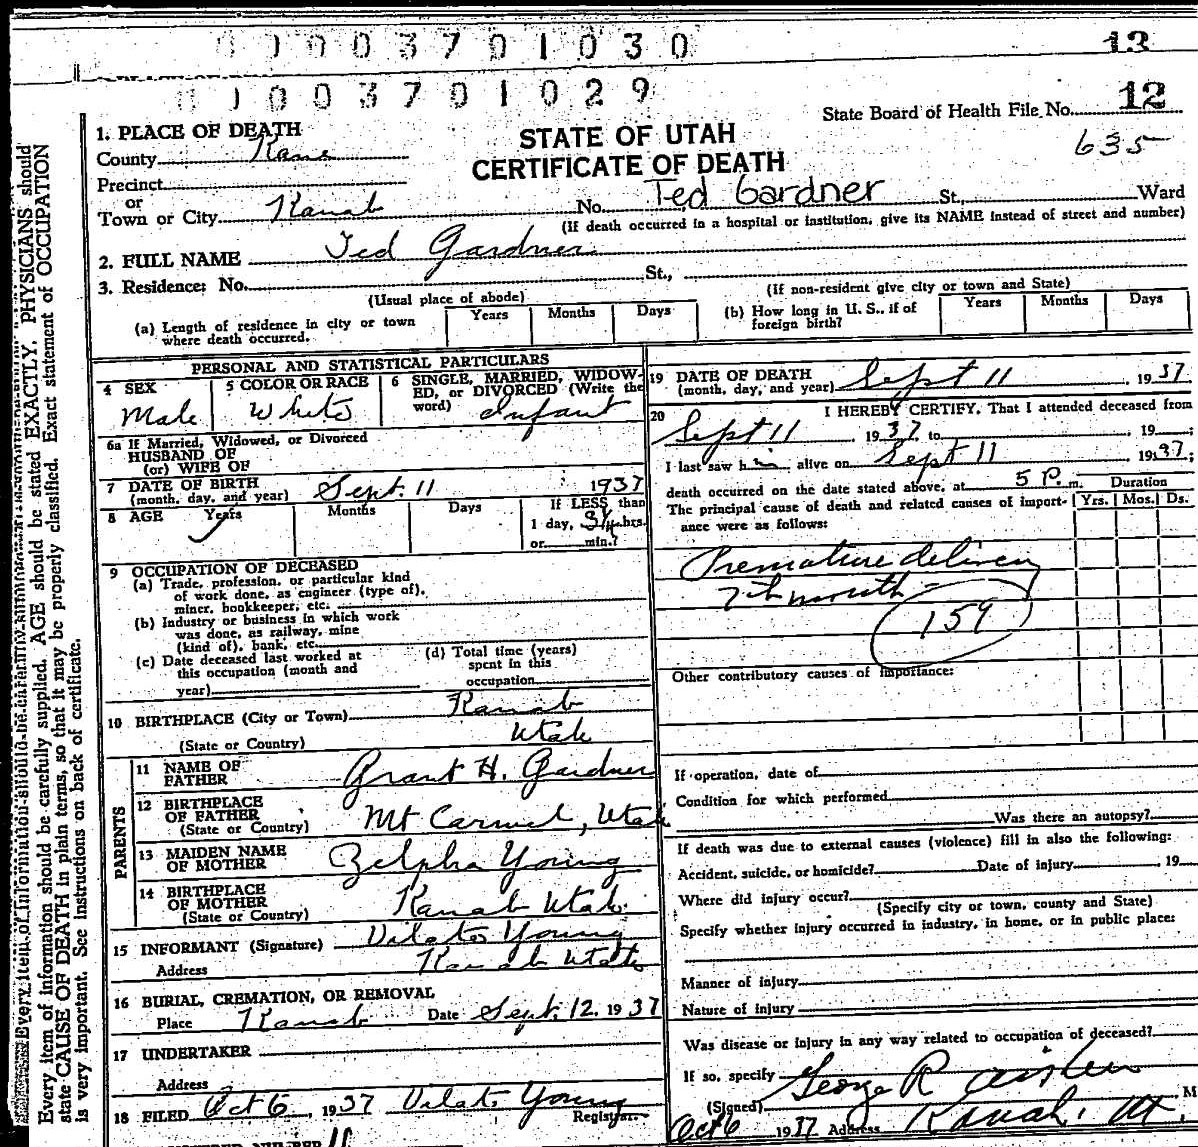 0 1 0 0 3 7 0 1 0 3 0
13
0 1 0 0 3 7 0 1 0 2 9
State Board of Health File No. 12
635
STATE OF UTAH
CERTIFICATE OF DEATH
1. PLACE OF DEATH
County Kane
Precinct
or
Town or City Kanab No. Ted Gardner St., Ward
(If death occurred in a hospital or institution, give its NAME instead of street and number)
2. FULL NAME Ted Gardner
3. Residence: No. St.,
(Usual place of abode) (If non-resident give city or town and State)
(a) Length of residence in city or town where death occurred. Years Months Days
(b) How long in U. S., if of foreign birth? Years Months Days
PERSONAL AND STATISTICAL PARTICULARS
4 SEX
Male
5 COLOR OR RACE
White
6 SINGLE, MARRIED, WIDOW-
ED, or DIVORCED (Write the
word) Infant
6a If Married, Widowed, or Divorced
HUSBAND OF
(or) WIFE OF
7 DATE OF BIRTH
(month, day, and year) Sept. 11 1937
8 AGE Years Months Days
If LESS than
1 day, 3/4 hrs.
or min.?
9 OCCUPATION OF DECEASED
(a) Trade, profession, or particular kind
of work done, as engineer (type of),
miner, bookkeeper, etc.
(b) Industry or business in which work
was done, as railway, mine
(kind of), bank, etc.
(c) Date deceased last worked at
this occupation (month and
year)
(d) Total time (years)
spent in this
occupation
10 BIRTHPLACE (City or Town) Kanab
(State or Country) Utah
PARENTS
11 NAME OF
FATHER Grant H. Gardner
12 BIRTHPLACE
OF FATHER
(State or Country) Mt Carmel, Utah
13 MAIDEN NAME
OF MOTHER Zelpha Young
14 BIRTHPLACE
OF MOTHER
(State or Country) Kanab Utah.
15 INFORMANT (Signature) Vilate Young
Address Kanab Utah
16 BURIAL, CREMATION, OR REMOVAL
Place Kanab Date Sept. 12. 1937
17 UNDERTAKER
Address
18 FILED Oct 6, 1937 Vilate Young
Registrar.
19 DATE OF DEATH
(month, day, and year) Sept 11, 1937
20 I HEREBY CERTIFY, That I attended deceased from
Sept 11, 1937, to , 19 ;
I last saw him alive on Sept 11 1937;
death occurred on the date stated above, at 5 P. m.
Duration
Yrs. Mos. Ds.
The principal cause of death and related causes of import-
ance were as follows:
Premature delivery
7th month -
159
Other contributory causes of importance:
If operation, date of
Condition for which performed
Was there an autopsy?
If death was due to external causes (violence) fill in also the following:
Accident, suicide, or homicide? Date of injury , 19
Where did injury occur?
(Specify city or town, county and State)
Specify whether injury occurred in industry, in home, or in public place:
Manner of injury
Nature of injury
Was disease or injury in any way related to occupation of deceased?
If so, specify
(Signed) George R Aiken M
Oct 6 1937 Address Kanab, Ut,
Every item of information should be carefully supplied. AGE should be stated EXACTLY. PHYSICIANS should
state CAUSE OF DEATH in plain terms, so that it may be properly classified. Exact statement of OCCUPATION
is very important. See instructions on back of certificate.